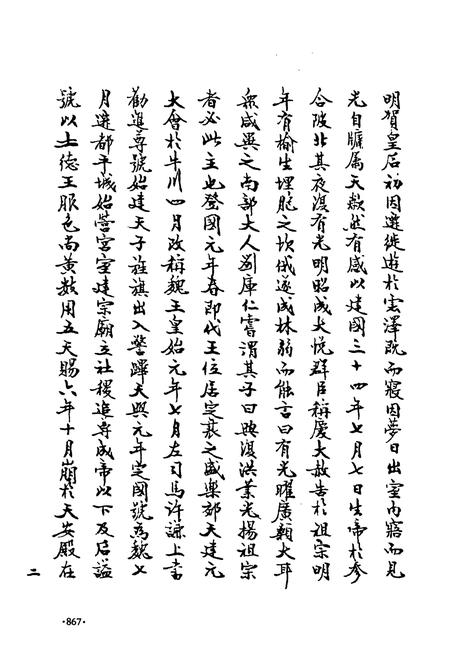 明賀皇后初因遷徙遊於雲澤既而寢因夢日出室內寤而見
光自牖屬天歘然有感以建國三十四年七月七日生帝於參
合陂北其夜復有光明昭成大悅群臣稱慶大赦告於祖宗明
年有榆生埋胞之坎俄遂成林弱而能言目有光曜廣顙大耳
眾咸異之南部大人劉庫仁嘗謂其子曰興復洪業光揚祖宗
者必此主也登國元年春即代王位居定襄之盛樂郊天建元
大會於牛川四月改稱魏王皇始元年七月左司馬許謙上書
勸進尊號始建天子旌旗出入警蹕天興元年定國號為魏七
月遷都平城始營宮室建宗廟立社稷追尊成帝以下及后謚
號以土德王服色尚黃數用五天賜六年十月崩於天安殿在
二
·867·